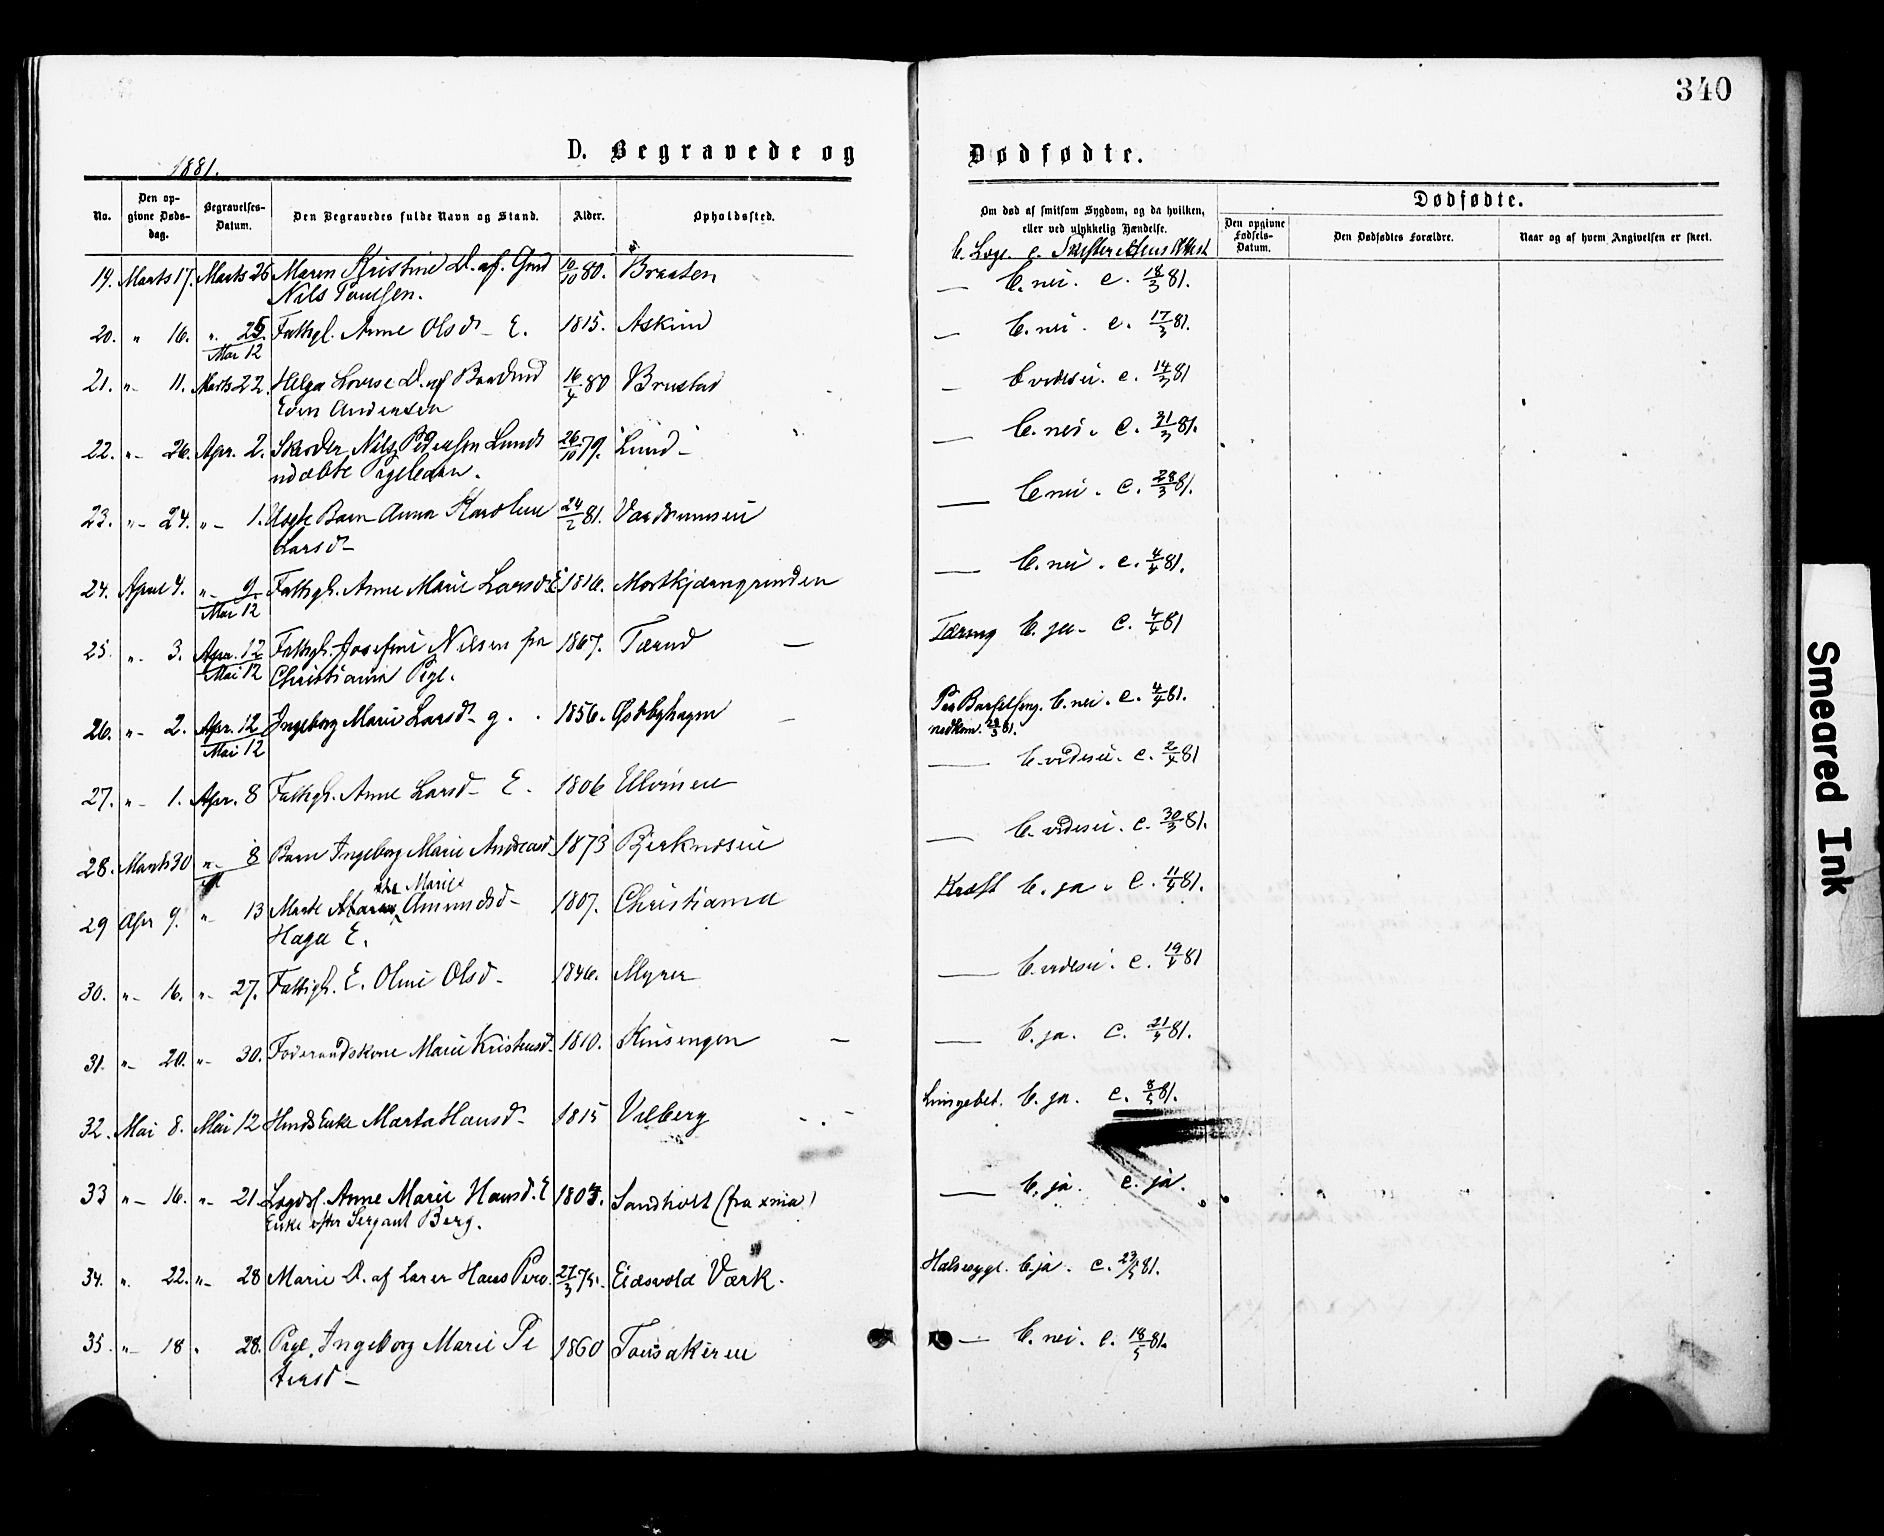 340
D. Begravede og
Dødfødte.
1881.
No.
Den op-
givne Døds-
dag.
Begravelses-
Datum.
Den Begravedes fulde Navn og Stand.
Alder.
Opholdssted.
Om død af smitsom Sygdom, og da hvilken,
eller ved ulykkelig Hændelse.
b. Læge. c. Skifterettens Attest
Dødfødte.
Den opgivne
Fødsels-
Datum.
Den Dødfødtes Forældre.
Naar og af hvem Angivelsen er skeet.
19. Marts 17. Marts 26 Maren Kristine D. af Gmd 10/10 80. Braaten — b. nei. c. 18/3 81.
Nils Poulsen.
20. " 16. " 25. Fattigl. Anne Olsd - E. 1815. Askim — b. nei. c. 17/3 81.
Mai 12
21. "- 11. Marts 22. Helga Lovise D. af 16/4 80 Brustad — b. c. 14/3 81
Even Andersen
22. "- 26. Apr. 2. Nils Pedersen Lunds 26/10 79. Lund - — b. nei. c. 31/3 81.
udøbte Pigebarn.
23. "- 24. "- 1. Uægte Barn Anna Karoline 24/2 81. — b. nei. c. 28/3 81.
Larsd -
24. April 4. "- 9. Fattigl. Anne Marie Larsd. E 1816. Mortkjærngrinden — b. nei. c. 4/4 81.
Mai 12
25. " 3. Apr. 12 Fattigl. Josefine Nilsen fra 1867. Tærud — Tæring b. ja - c. 4/4 81
Mai 12 Christiania Pige.
26. "- 2. Apr. 12 Ingeborg Marie Larsd - g. 1856. Østbyhagen — Paa Barselseng. b. nei. c. 4/4 81.
Mai 12
nedkom. 28/3 81.
27. "- 1. Apr. 8 Fattigl. Anne Larsd - E. 1806 Ulvinen — b. c. 2/4 81
28. Marts 30 "- 8 Barn Ingeborg Marie Andreasd. 1873 — b. c. 30/3 81.
Marie
29 Apr 9. " 13 Marte Amundsd - 1807. Christiania Kræft b. ja. c. 11/4 81.
Haga E.
30. "- 16. "- 27. Fattigl. E. Oline Olsd - 1846. Myrer — b. c. 19/4 81
31. "- 20. "- 30. Føderaadskone Marie Kristensd. 1810. — — b. ja. c. 21/4 81.
32. Mai 8. Mai 12 Marta Hansd - 1815 Vilberg b. ja. c. 8/5 81.
33 "- 16. "- 21. Lægdsl. Anne Marie Hansd. E 1803. Sandholt (fra xnia) — b. ja. c. ja.
Enke efter Sergant Berg.
34. " 22. "- 28 Marie D. af Lærer Hans 27/3 75. Eidsvold Værk. Halssyge. b. ja. c. 23/5 81.
35. "- 18 " 28. Pige. Ingeborg Marie Pe 1860 — b. nei. c. 18/5 81.
tersd -
Smeared Ink